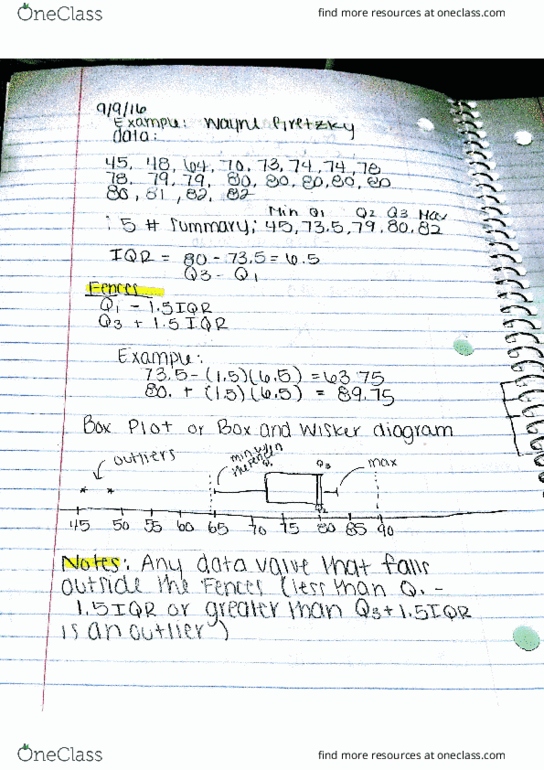 OneClass
find more resources at oneclass.com
9/9/16
Example: Wayne Gretzky
data:
45, 48, 64, 70, 73, 74, 74, 78
78, 79, 79, 80, 80, 80, 80, 80
80, 81, 82, 82
Min Q1 Q2 Q3 Max
5 # Summary: 45, 73.5, 79, 80, 82
IQR = 80 - 73.5 = 6.5
Q3 - Q1
Fences
Q1 - 1.5IQR
Q3 + 1.5 IQR
Example:
73.5 - (1.5)(6.5) = 63.75
80. + (1.5)(6.5) = 89.75
Box Plot or Box and Wisker diagram
outliers
min w/in
the fences
Q1
Q3
max
* *
Q2
45 50 55 60 65 70 75 80 85 90
Notes: Any data value that falls
outside the Fences (less than Q1 -
1.5IQR or greater than Q3 + 1.5IQR
is an outlier)
OneClass
find more resources at oneclass.com